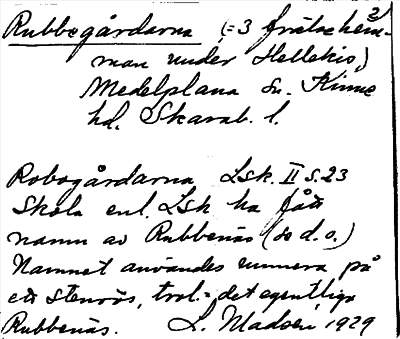 Rubbegårdarna (= 3 frälsehem-
man under Hellekis)
Medelplana sn. Kinne
hd. Skarab. l.
Robogårdarna Lsk. II s. 23
Skola enl. Lsk ha fått
namn av Rubbenäs (se d.o.)
Namnet användes numera på
ett stenrös, trol. = det egentliga
Rubbenäs. L. Madsén 1929